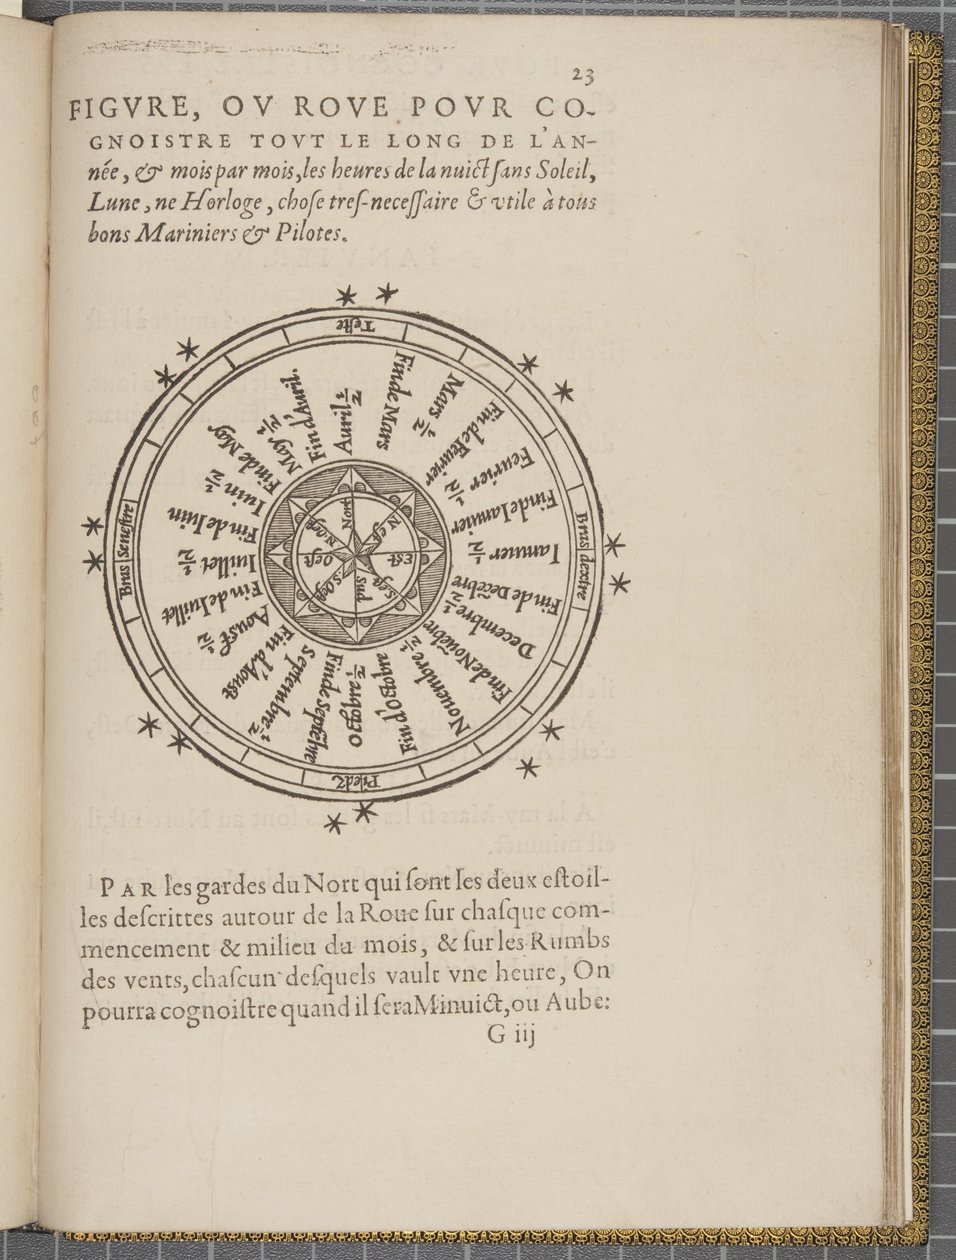 23
FIGVRE, OV ROVE POVR CO-
GNOISTRE TOVT LE LONG DE L'AN-
née, & mois par mois, les heures de la nuict ſans Soleil,
Lune, ne Horloge, choſe treſ-neceſſaire & vtile à tous
bons Mariniers & Pilotes.
Teſte
Fin de Mars
Mars 1/2
Fin de Feurier
Feurier 1/2
Fin de Ianuier.
Ianuier 1/2
Fin de Decēbre
Decembre. 1/2
Fin de Nouēbre
Nouembre 1/2
Fin d'Octobre
Octobre 1/2
Fin de Septēbre
Septembre. 1/2
Fin d'Aouſt
Aouſt 1/2
Fin de Iuillet
Iuillet 1/2
Fin de Iuin
Iuin 1/2
Fin de May
May 1/2
Fin d'Auril.
Auril 1/2
Bras dextre
Piedz
Bras seneſtre
Nort
N.eſt
Eſt
S.eſt
Sud
S.Oeſt
Oeſt
N.oeſt
PAR les gardes du Nort qui ſont les deux eſtoil-
les deſcrittes autour de la Roue ſur chaſque com-
mencement & milieu du mois, & ſur les Rumbs
des vents, chaſcun deſquels vault vne heure, On
pourra cognoiſtre quand il ſera Minuict, ou Aube:
G iij